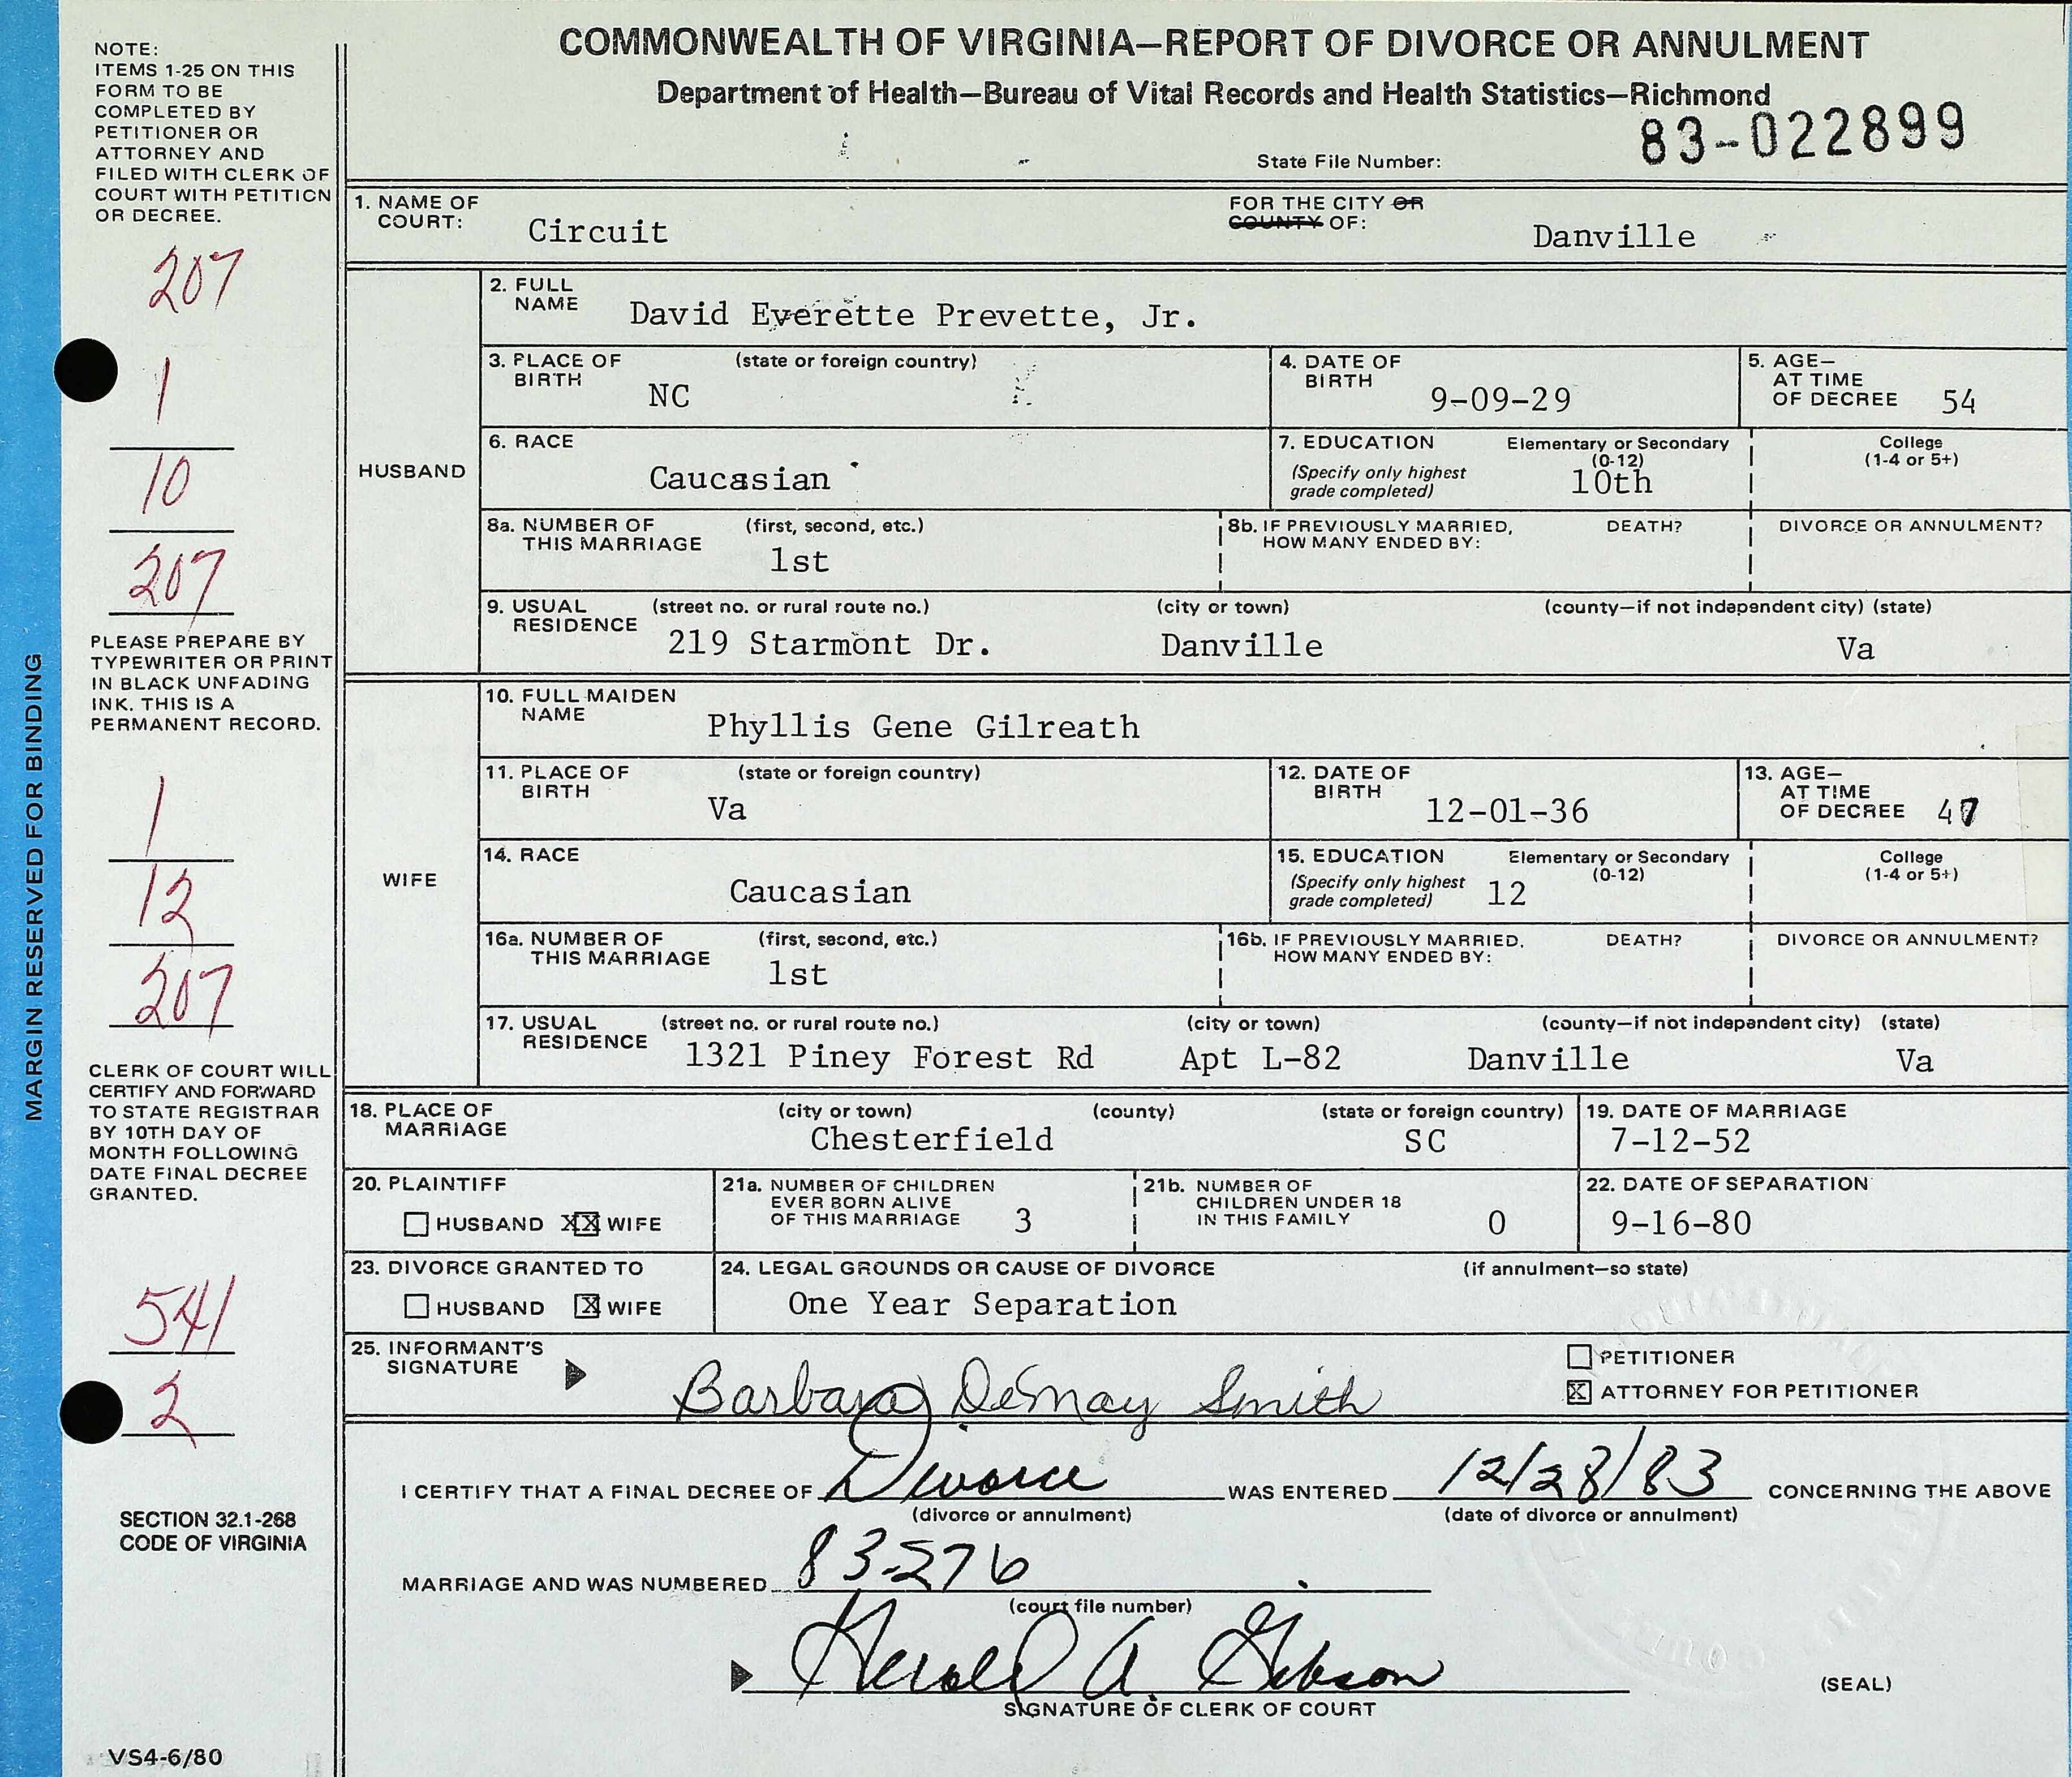 COMMONWEALTH OF VIRGINIA—REPORT OF DIVORCE OR ANNULMENT
Department of Health—Bureau of Vital Records and Health Statistics—Richmond
83-022899
State File Number:
NOTE:
ITEMS 1-25 ON THIS
FORM TO BE
COMPLETED BY
PETITIONER OR
ATTORNEY AND
FILED WITH CLERK OF
COURT WITH PETITION
OR DECREE.
207
1
10
207
PLEASE PREPARE BY
TYPEWRITER OR PRINT
IN BLACK UNFADING
INK. THIS IS A
PERMANENT RECORD.
1
12
207
CLERK OF COURT WILL
CERTIFY AND FORWARD
TO STATE REGISTRAR
BY 10TH DAY OF
MONTH FOLLOWING
DATE FINAL DECREE
GRANTED.
541
2
SECTION 32.1-268
CODE OF VIRGINIA
VS4-6/80
MARGIN RESERVED FOR BINDING
1. NAME OF COURT: Circuit
FOR THE CITY OR COUNTY OF: Danville
HUSBAND
2. FULL NAME David Everette Prevette, Jr.
3. PLACE OF BIRTH (state or foreign country) NC
4. DATE OF BIRTH 9-09-29
5. AGE— AT TIME OF DECREE 54
6. RACE Caucasian
7. EDUCATION (Specify only highest grade completed) Elementary or Secondary (0-12) 10th
College (1-4 or 5+)
8a. NUMBER OF THIS MARRIAGE (first, second, etc.) 1st
8b. IF PREVIOUSLY MARRIED, HOW MANY ENDED BY: DEATH? DIVORCE OR ANNULMENT?
9. USUAL RESIDENCE (street no. or rural route no.) (city or town) (county—if not independent city) (state)
219 Starmont Dr. Danville Va
WIFE
10. FULL MAIDEN NAME Phyllis Gene Gilreath
11. PLACE OF BIRTH (state or foreign country) Va
12. DATE OF BIRTH 12-01-36
13. AGE— AT TIME OF DECREE 47
14. RACE Caucasian
15. EDUCATION (Specify only highest grade completed) Elementary or Secondary (0-12) 12
College (1-4 or 5+)
16a. NUMBER OF THIS MARRIAGE (first, second, etc.) 1st
16b. IF PREVIOUSLY MARRIED, HOW MANY ENDED BY: DEATH? DIVORCE OR ANNULMENT?
17. USUAL RESIDENCE (street no. or rural route no.) (city or town) (county—if not independent city) (state)
1321 Piney Forest Rd Apt L-82 Danville Va
18. PLACE OF MARRIAGE (city or town) (county) (state or foreign country)
Chesterfield SC
19. DATE OF MARRIAGE
7-12-52
20. PLAINTIFF
HUSBAND XX WIFE
21a. NUMBER OF CHILDREN EVER BORN ALIVE OF THIS MARRIAGE 3
21b. NUMBER OF CHILDREN UNDER 18 IN THIS FAMILY 0
22. DATE OF SEPARATION
9-16-80
23. DIVORCE GRANTED TO
HUSBAND X WIFE
24. LEGAL GROUNDS OR CAUSE OF DIVORCE (if annulment—so state)
One Year Separation
25. INFORMANT'S SIGNATURE Barbara DeMay Smith
PETITIONER
X ATTORNEY FOR PETITIONER
I CERTIFY THAT A FINAL DECREE OF Divorce WAS ENTERED 12/28/83 CONCERNING THE ABOVE
(divorce or annulment) (date of divorce or annulment)
MARRIAGE AND WAS NUMBERED 83-276
(court file number)
Gerald A. Gibson
SIGNATURE OF CLERK OF COURT
(SEAL)